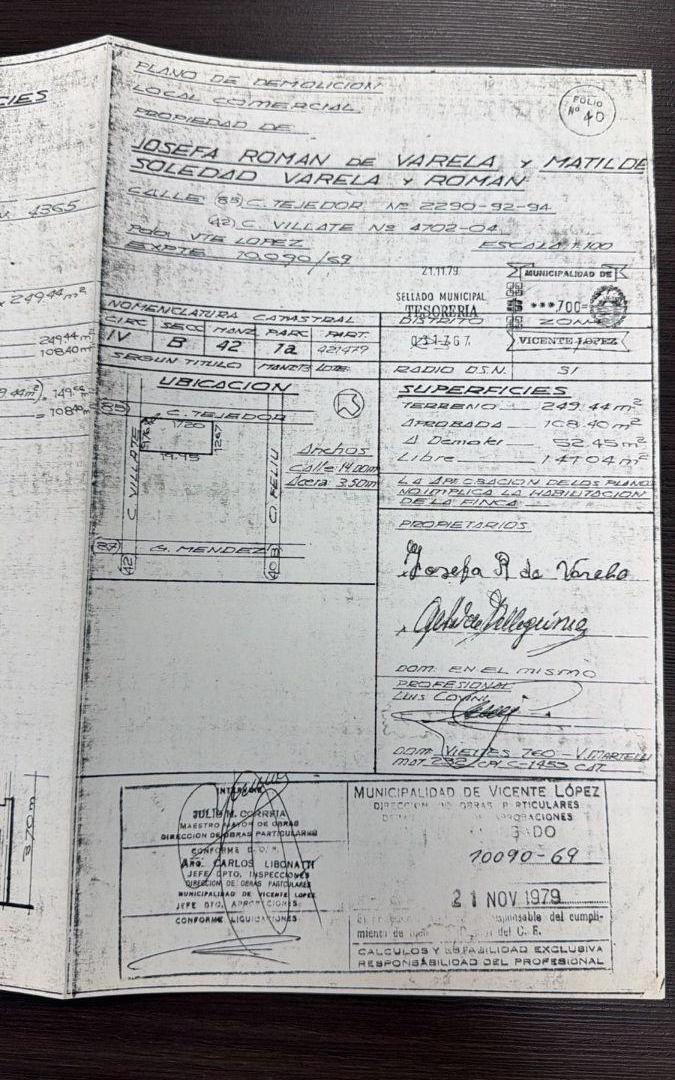 CIES
4365
249.44m²
249.44m²
108.40m²
= 108.40m²
3.70m
PLANO DE DEMOLICION
LOCAL COMERCIAL
PROPIEDAD DE
FOLIO
Nº 40
JOSEFA ROMAN DE VARELA Y MATILDE
SOLEDAD VARELA Y ROMAN
CALLE (85) C. TEJEDOR Nº 2290-92-94
(42) C. VILLATE Nº 4702-04
POB. VTE LOPEZ
ESCALA 1:100
EXPTE 10.090/69
21.11.79
SELLADO MUNICIPAL
TESORERIA
MUNICIPALIDAD DE
$ ***,700=
VICENTE LOPEZ
NOMENCLATURA CATASTRAL
DISTRITO
ZONA
CIRC SECC MANZ. PARC PART.
IV B 42 1a
SEGUN TITULO MANZ LOTE
RADIO D.S.N. SI
UBICACION
(85) C. TEJEDOR
C. VILLATE
19.45
12.67
C. FELIU
Anchos
Calle 14.00m
Acera 3.50m
(87) G. MENDEZ
(42)
SUPERFICIES
TERRENO 249.44m²
APROBADA 108.40m²
A Demoler 52.45m²
Libre 147.04m²
LA APROBACION DE LOS PLANOS
NO IMPLICA LA HABILITACION
DE LA FINCA
PROPIETARIOS
Josefa R de Varela
DOM: EN EL MISMO
PROFESIONAL
LUIS
DOM: VIEYTES 760 - V. MARTELLI
JULIO M. CORREIA
MAESTRO MAYOR DE OBRAS
DIRECCION DE OBRAS PARTICULARES
CONFORME
ARQ. CARLOS LIBONATTI
JEFE DPTO. INSPECCIONES
DIRECCION DE OBRAS PARTICULARES
MUNICIPALIDAD DE VICENTE LOPEZ
JEFE DTO. APROBACIONES
CONFORME LIQUIDACIONES
MUNICIPALIDAD DE VICENTE LÓPEZ
DIRECCION DE OBRAS PARTICULARES
APROBACIONES
10090-69
21 NOV 1979
responsable del cumpli-
miento de
del C. E.
CALCULOS Y ESTABILIDAD EXCLUSIVA
RESPONSABILIDAD DEL PROFESIONAL